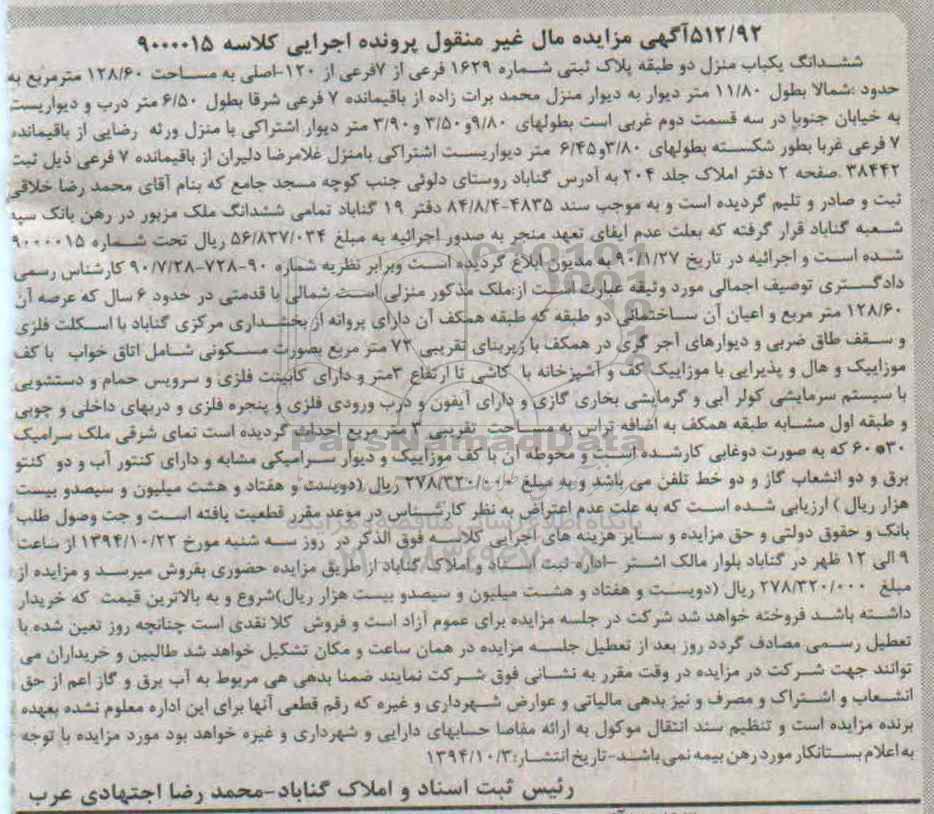 ۵۱۲/۹۲آگهی مزایده مال غیر منقول پرونده اجرایی کلاسه ۹۰۰۰۰۱۵
ششدانگ یکباب منزل دو طبقه پلاک ثبتی شماره ۱۶۲۹ فرعی از ۷فرعی از ۱۲۰-اصلی به مساحت ۱۲۸/۶۰ مترمربع به
حدود :شمالا بطول ۱۱/۸۰ متر دیوار به دیوار منزل محمد برات زاده از باقیمانده ۷ فرعی شرقا بطول ۶/۵۰ متر درب و دیواریست
به خیابان جنوبا در سه قسمت دوم غربی است بطولهای ۹/۸۰و۳/۵۰ و۳/۹۰ متر دیوار اشتراکی با منزل ورثه رضایی از باقیمانده
۷ فرعی غربا بطور شکسته بطولهای ۳/۸۰و۶/۴۵ متر دیواریست اشتراکی بامنزل غلامرضا دلیران از باقیمانده ۷ فرعی ذیل ثبت
۳۸۴۴۲ .صفحه ۲ دفتر املاک جلد ۲۰۴ به آدرس گناباد روستای دلوئی جنب کوچه مسجد جامع که بنام آقای محمد رضا خلاقی
ثبت و صادر و تلیم گردیده است و به موجب سند ۴۸۳۵-۸۴/۸/۴ دفتر ۱۹ گناباد تمامی ششدانگ ملک مزبور در رهن بانک سپه
شعبه گناباد قرار گرفته که بعلت عدم ایفای تعهد منجر به صدور اجرائیه به مبلغ ۵۶/۸۳۷/۰۳۴ ریال تحت شماره ۹۰۰۰۰۱۵
شده است و اجرائیه در تاریخ ۹۰/۱/۲۷ به مدیون ابلاغ گردیده است وبرابر نظریه شماره ۹۰-۷۲۸-۹۰/۷/۲۸ کارشناس رسمی
دادگستری توصیف اجمالی مورد وثیقه عبارت است از:ملک مذکور منزلی است شمالی با قدمتی در حدود ۶ سال که عرصه آن
۱۲۸/۶۰ متر مربع و اعیان آن ساختمانی دو طبقه که طبقه همکف آن دارای پروانه از بخشداری مرکزی گناباد با اسکلت فلزی
و سقف طاق ضربی و دیوارهای آجر گری در همکف با زیربنای تقریبی ۷۲ متر مربع بصورت مسکونی شامل اتاق خواب با کف
موزاییک و هال و پذیرایی با موزاییک کف و آشپزخانه با کاشی تا ارتفاع ۳متر و دارای کابینت فلزی و سرویس حمام و دستشویی
با سیستم سرمایشی کولر آبی و گرمایشی بخاری گازی و دارای آیفون و درب ورودی فلزی و پنجره فلزی و دربهای داخلی و چوبی
و طبقه اول مشابه طبقه همکف به اضافه تراس به مساحت تقریبی ۳ متر مربع احداث گردیده است نمای شرقی ملک سرامیک
۳۰*۶۰ که به صورت دوغابی کارشده است و محوطه آن با کف موزاییک و دیوار سرامیکی مشابه و دارای کنتور آب و دو کنتو
برق و دو انشعاب گاز و دو خط تلفن می باشد و به مبلغ ۲۷۸/۳۲۰/۰۰۰ ریال (دویست و هفتاد و هشت میلیون و سیصدو بیست
هزار ریال ) ارزیابی شده است که به علت عدم اعتراض به نظر کارشناس در موعد مقرر قطعیت یافته است و جت وصول طلب
بانک و حقوق دولتی و حق مزایده و سایر هزینه های اجرایی کلاسه فوق الذکر در روز سه شنبه مورخ ۱۳۹۴/۱۰/۲۲ از ساعت
۹ الی ۱۲ ظهر در گناباد بلوار مالک اشتر -اداره ثبت اسناد و املاک گناباد از طریق مزایده حضوری بفروش میرسد و مزایده از
مبلغ ۲۷۸/۳۲۰/۰۰۰ ریال (دویست و هفتاد و هشت میلیون و سیصدو بیست هزار ریال)شروع و به بالاترین قیمت که خریدار
داشته باشد فروخته خواهد شد شرکت در جلسه مزایده برای عموم آزاد است و فروش کلا نقدی است چنانچه روز تعین شده با
تعطیل رسمی مصادف گردد روز بعد از تعطیل جلسه مزایده در همان ساعت و مکان تشکیل خواهد شد طالبین و خریداران می
توانند جهت شرکت در مزایده در وقت مقرر به نشانی فوق شرکت نمایند ضمنا بدهی هی مربوط به آب برق و گاز اعم از حق
انشعاب و اشتراک و مصرف و نیز بدهی مالیاتی و عوارض شهرداری و غیره که رقم قطعی آنها برای این اداره معلوم نشده بعهده
برنده مزایده است و تنظیم سند انتقال موکول به ارائه مفاصا حسابهای دارایی و شهرداری و غیره خواهد بود مورد مزایده با توجه
به اعلام بستانکار مورد رهن بیمه نمی باشد-تاریخ انتشار:۱۳۹۴/۱۰/۳
رئیس ثبت اسناد و املاک گناباد-محمد رضا اجتهادی عرب
ParsNamadData